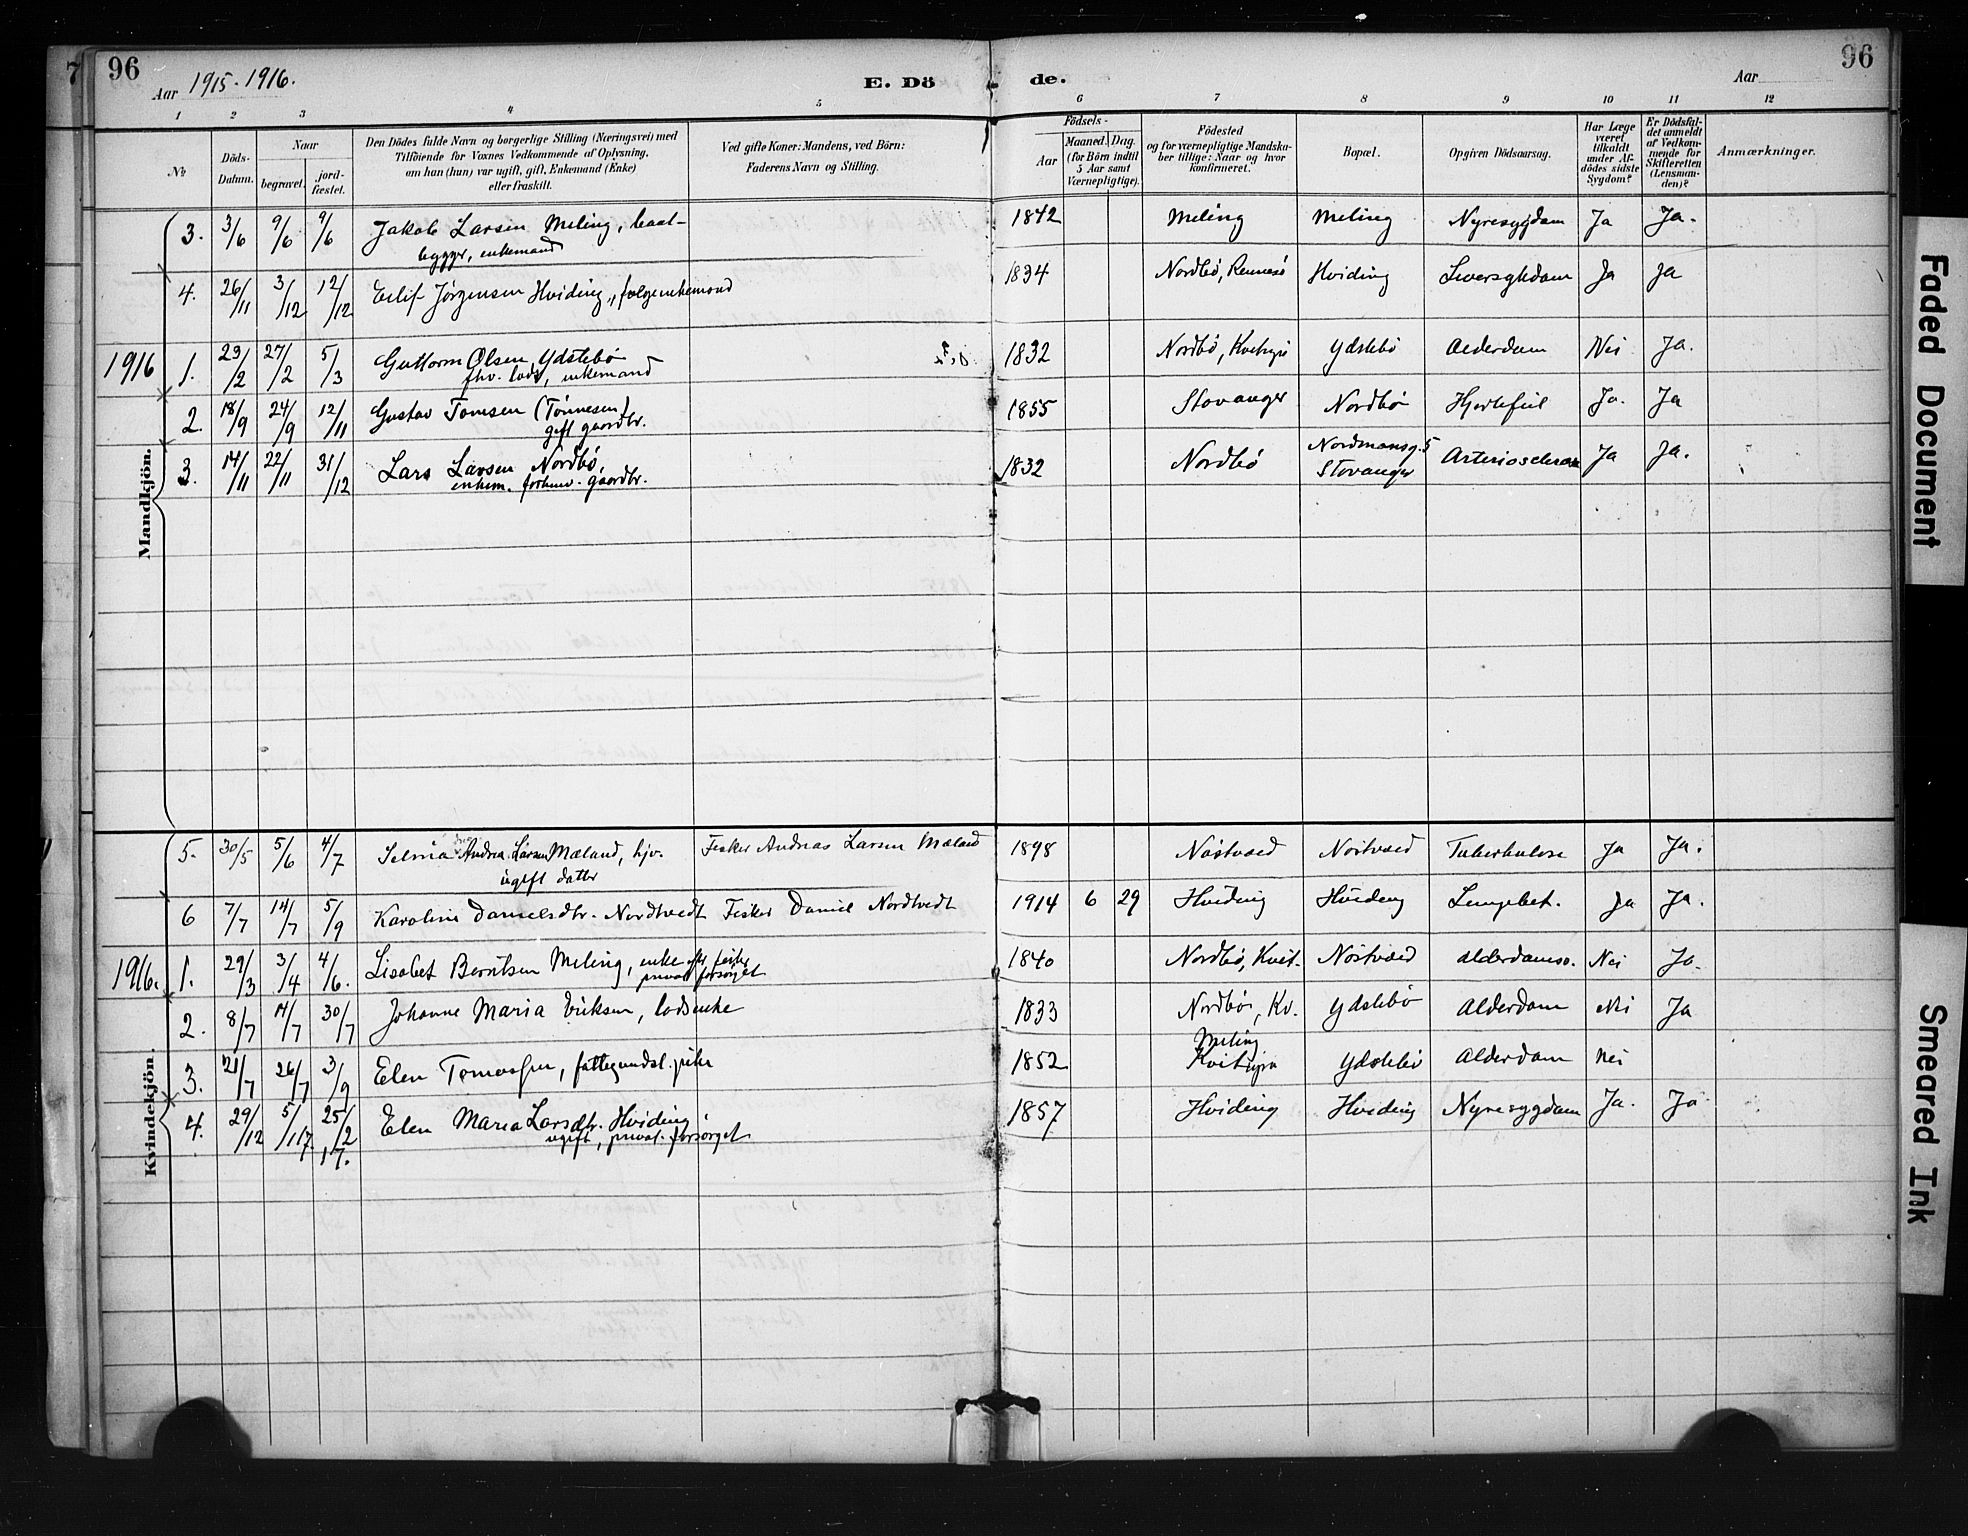 96
Aar 1915-1916.
E. Dö
de.
Aar
96
1 2 3 4 5 6 7 8 9 10 11 12
№
Döds-
Datum.
Naar
begravet.
jord-
fæstet.
Den Dödes fulde Navn og borgerlige Stilling (Næringsvei) med
Tilföiende for Voxnes Vedkommende af Oplysning,
om han (hun) var ugift, gift, Enkemand (Enke)
eller fraskilt.
Ved gifte Koner: Mandens, ved Börn:
Faderens Navn og Stilling.
Födsels-
Aar
Maaned. Dag.
(for Börn indtil
5 Aar samt
Værnepligtige).
Födested
og for værnepligtige Mandska-
ber tillige: Naar og hvor
konfirmeret.
Bopæl.
Opgiven Dödsaarsag.
Har Læge
været
tilkaldt
under Af-
dödes sidste
Sygdom?
Er Dödsfal-
det anmeldt
af Vedkom-
mende for
Skifteretten
(Lensman-
den)?
Anmærkninger.
Mandkjön.
3. 3/6 9/6 9/6 Jakob Larsen Meling, baat- 1842 Meling Meling Nyresygdam Ja Ja.
bygger, enkemand
4. 26/11 3/12 12/12 Eilif Jörgensen Hviding, folgeenkemand 1834 Nordbø, Rennesø Hviding Leversygdam Ja Ja
1916 1. 23/2 27/2 5/3 Guttorm Olsen Ydstebö 1832 Nordbø, Kvitsøy Ydstebö Alderdom Nei Ja.
fhv. lods, enkemand
2. 18/9 24/9 12/11 Gustav Tomsen (Tönnesen) 1855 Stavanger Nordbø Hjertefeil Ja. Ja
gift gaardbr.
3. 14/11 22/11 31/12 Lars Larsen Nordbø, 1832 Nordbø Nordmansg. 5 Arteriosclerose Ja Ja.
enkem. forhenv. gaardbr. Stavanger
Kvindekjön.
5. 30/5 5/6 4/7 Selma Andrea Larsen Mæland, hjv. Fisker Andreas Larsen Mæland 1898 Nöstvæd Nöstvæd Tuberkulose Ja Ja.
ugift datter
6 7/7 14/7 5/9 Karoline Danielsdtr. Nordtvedt Fisker Daniel Nordtvedt 1914 6 29 Hviding Hviding Lungebet. Ja Ja.
1916. 1. 29/3 3/4 4/6. Lisabet Berntsen Meling, enke efter fisker 1840 Nordbø, Kvit. Nöstvæd Alderdomss. Nei Ja.
privat forsørget
2. 8/7 14/7 30/7 Johanne Maria Eriksen, lodsenke 1833 Nordbø, Kv. Ydstebö Alderdom Nei Ja
3. 21/7 26/7 3/9 Elen , fattigundst. pike 1852 Meling Ydstebö Alderdom Nei
Kvitsøy
4. 29/12 5/1 17 25/2 17. Elen Maria Larsdtr. Hviding 1857 Hviding Hviding Nyresygdam Ja. Ja
ugift, privat forsørget
Faded Document
Smeared Ink